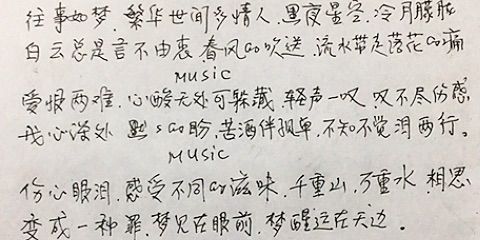 往事如梦.繁华世间多情人.黑夜星空.冷月朦胧
白云总是言不由衷.春风的吹送.流水带走落花的痛
MUSIC
爱恨两难.心酸无处可躲藏.轻声一叹.叹不尽伤感
我心深处 的盼.苦酒伴孤单.不知不觉泪两行。
MUSIC
伤心眼泪.感受不同的滋味.千重山.万重水 相思
变成一种罪.梦见在眼前.梦醒远在天边.